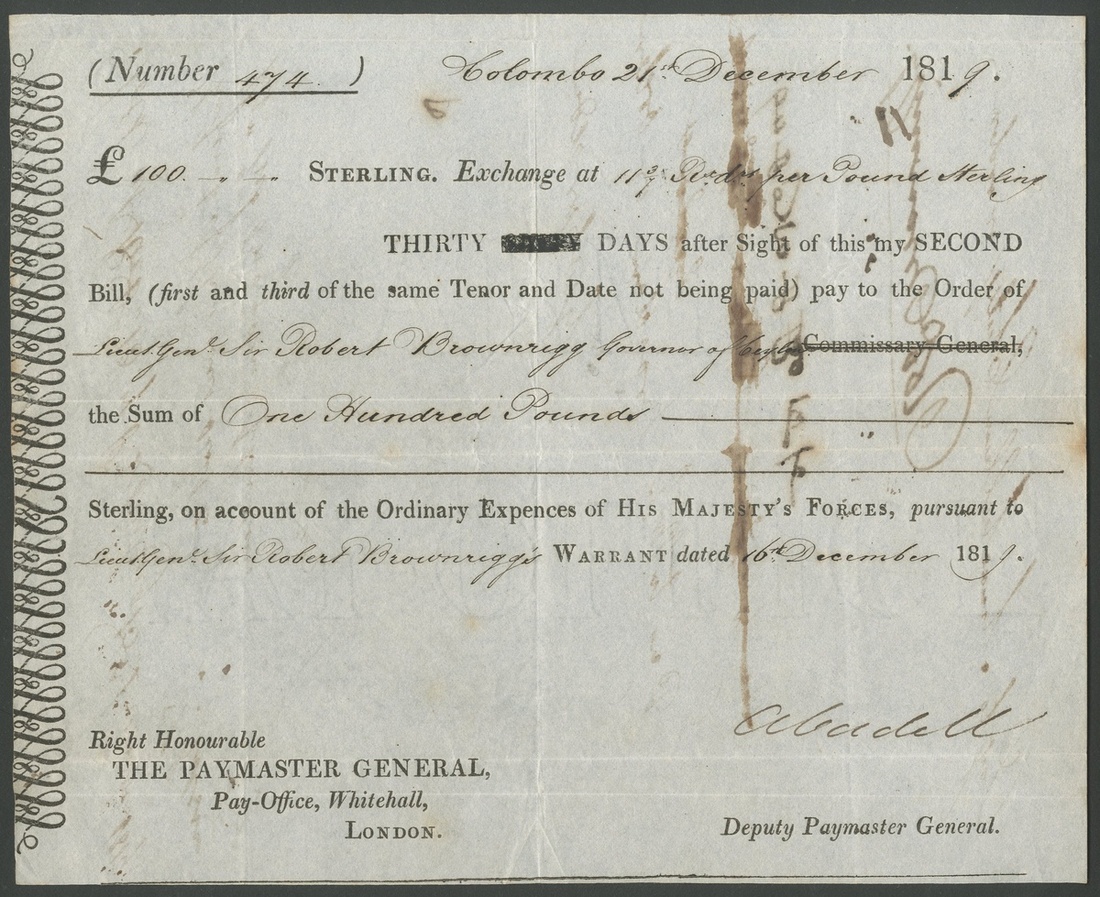 (Number 474.)
Colombo 21st December 1819.
£ 100. STERLING. Exchange at 11 per Pound Sterling
THIRTY DAYS after Sight of this my SECOND
Bill, (first and third of the same Tenor and Date not being paid) pay to the Order of
Lieut. Genl. Sir Robert Brownrigg Governor of Ceylon Commissary General,
the Sum of One Hundred Pounds
Sterling, on account of the Ordinary Expences of HIS MAJESTY'S FORCES, pursuant to
Lieut. Genl. Sir Robert Brownrigg's WARRANT dated 16th December 1819.
Right Honourable
THE PAYMASTER GENERAL,
Pay-Office, Whitehall,
LONDON.
Deputy Paymaster General.